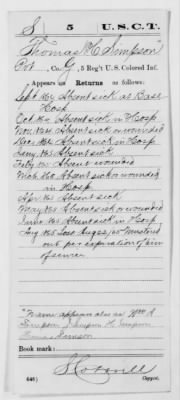 S 5 U.S.C.T.
Thomas H. Simpson
Pvt, Co. G, 5 Reg't U.S. Colored Inf.
Appears on Returns as follows:
Sept 1864 Absent sick at Base
Hosp
Oct 1864 Absent sick in Hosp
Nov. 1864 Absent sick or wounded
Dec, 1864 Absent sick in Hosp
Jany, 1865 Absent sick
Feby 1865 Absent wounded
Mch 1865 Absent sick or wounded
in Hosp
Apr 1865 Absent sick
May 1865 Absent sick or wounded
June 1865 Absent sick in Hosp
Aug 1865 Loss Aug 22/65 Mustered
out per expiration of term
of service
Name appears also as Wm H
Simpson
Simson
Book mark:
(646) Copyist.